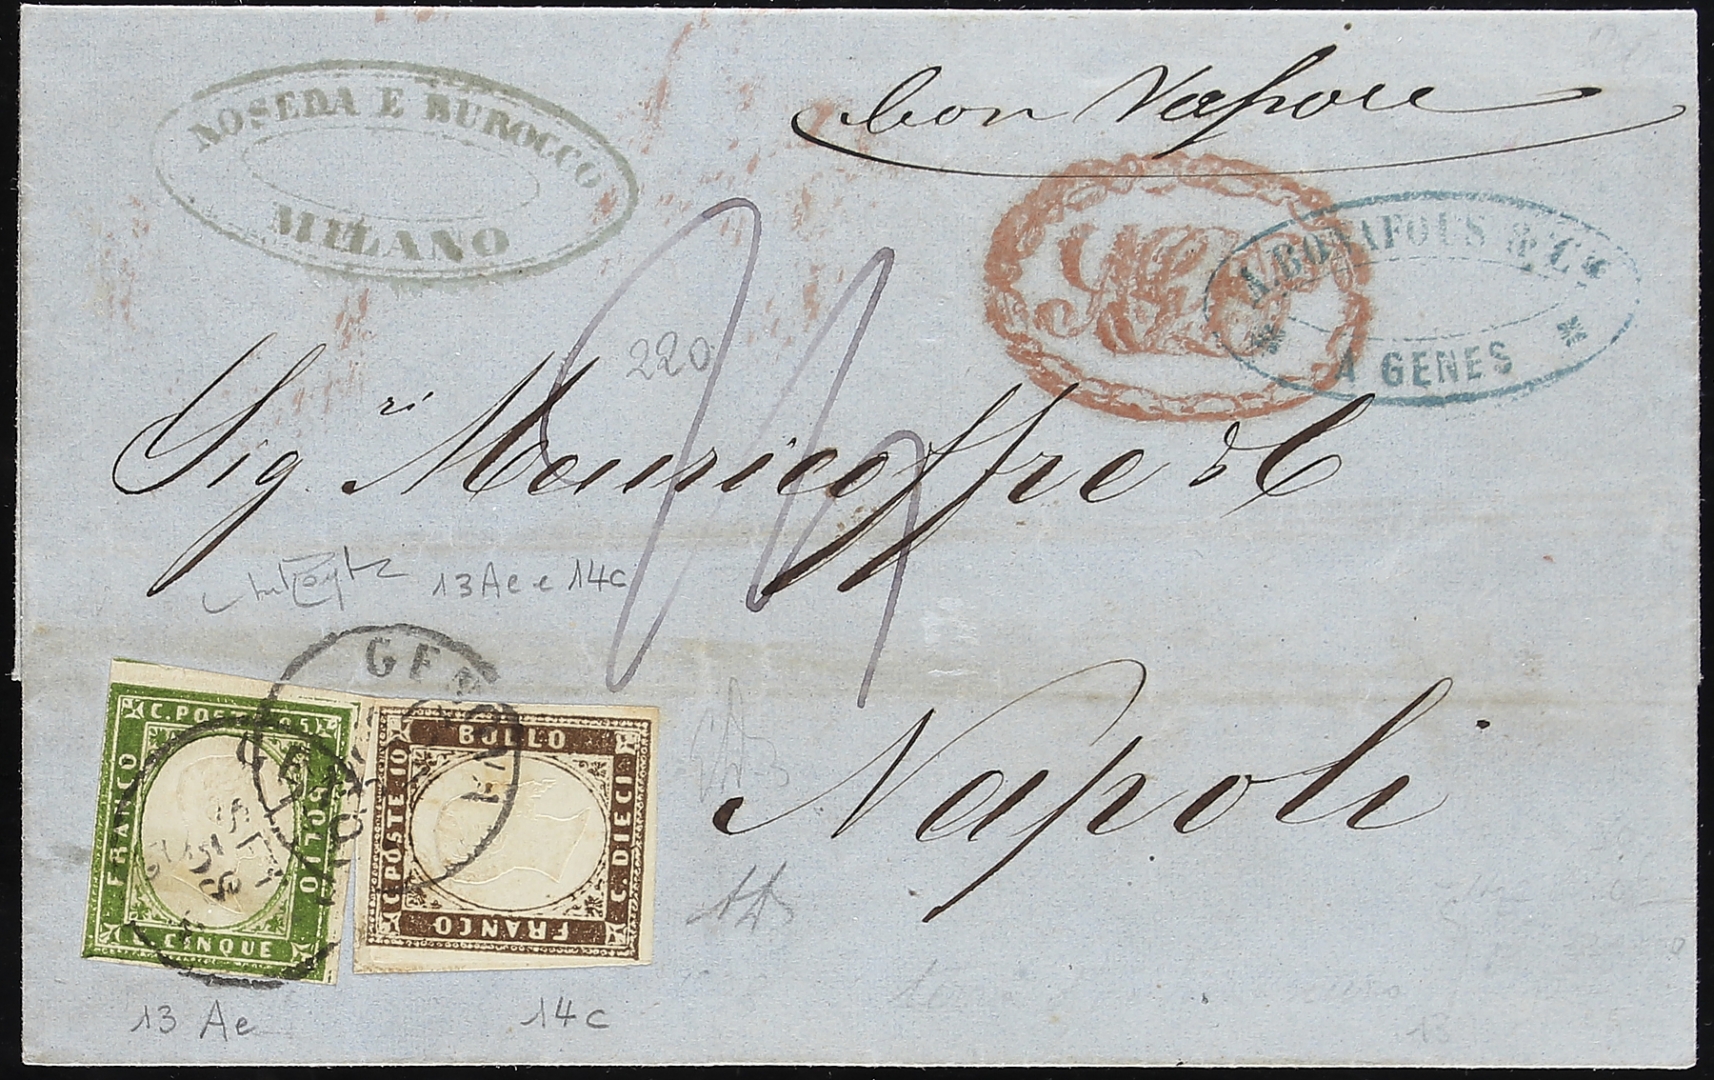 NOSEDA E BUROCCO
MILANO
con Vapore
A. BONAFOUS & Cie
A GENES
220
Sig.ri Meuricoffre & C
13Ae e 14c
GENOVA
GENOVA
C. POSTE 5
FRANCO
BOLLO
C. CINQUE
BOLLO
C. POSTE 10
C. DIECI
FRANCO
Napoli
13 Ae
14c